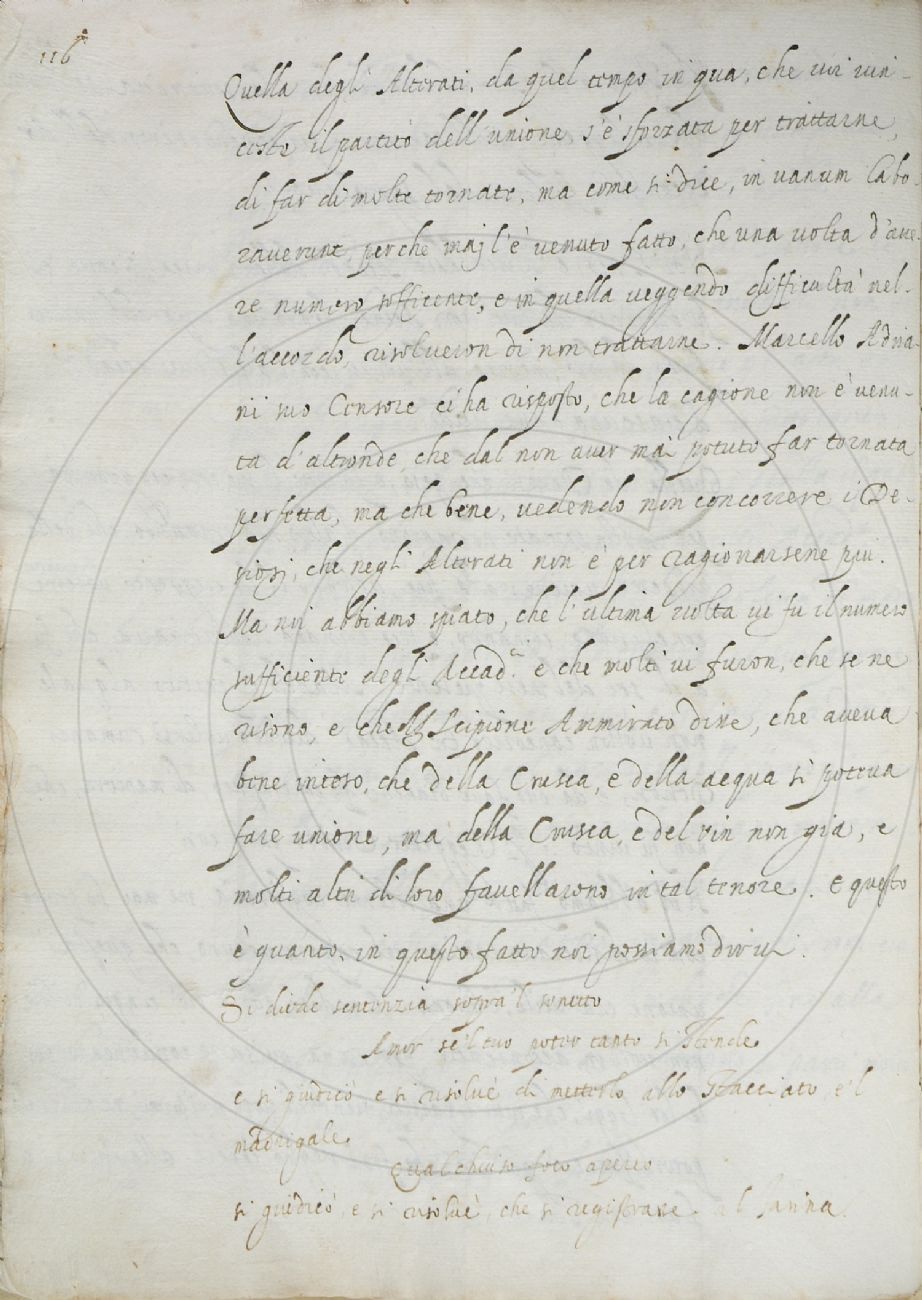 116
Quella degli Alterati, da quel tempo in qua, che ivi vin-
ceste il partito dell'unione, s'è sforzata per trattarne,
di far di molte tornate, ma come si dice, in uanum labo-
rauerunt, perche maj l'è venuto fatto, che una volta d'aue-
re numero sofficente, e in quella veggendo difficultà nel-
l'accordo, risolueron di non trattarne. Marcello Adria-
ni suo Censore ci ha risposto, che la cagione non è venu-
ta d'altronde, che dal non auer mai potuto far tornata
perfetta, ma che bene, vedendo non concorrere i De-
siosi, che negli Alterati non è per ragionarsene piu.
Ma noi abbiamo spiato, che l'ultima volta vi fu il numero
sufficiente degli Accad.ci e che molti vi furon, che se ne
risono, e che Scipione Ammirato disse, che aueva
bene inteso, che della Crusca, e della acqua si poteua
fare unione, ma della Crusca, e del vin non gia, e
molti altri di loro fauellarono in tal tenore. E questo
è quanto, in questo fatto noi possiamo dirui.
Si diede sentenzia sopra 'l sonetto
Amor se 'l tuo poter tanto si stende
e si giudicò e si risoluè di metterlo allo Stacciato, e 'l
madrigale
Qual chiuso foco aperto
si giudicò, e si risoluè, che si registrasse al farina.